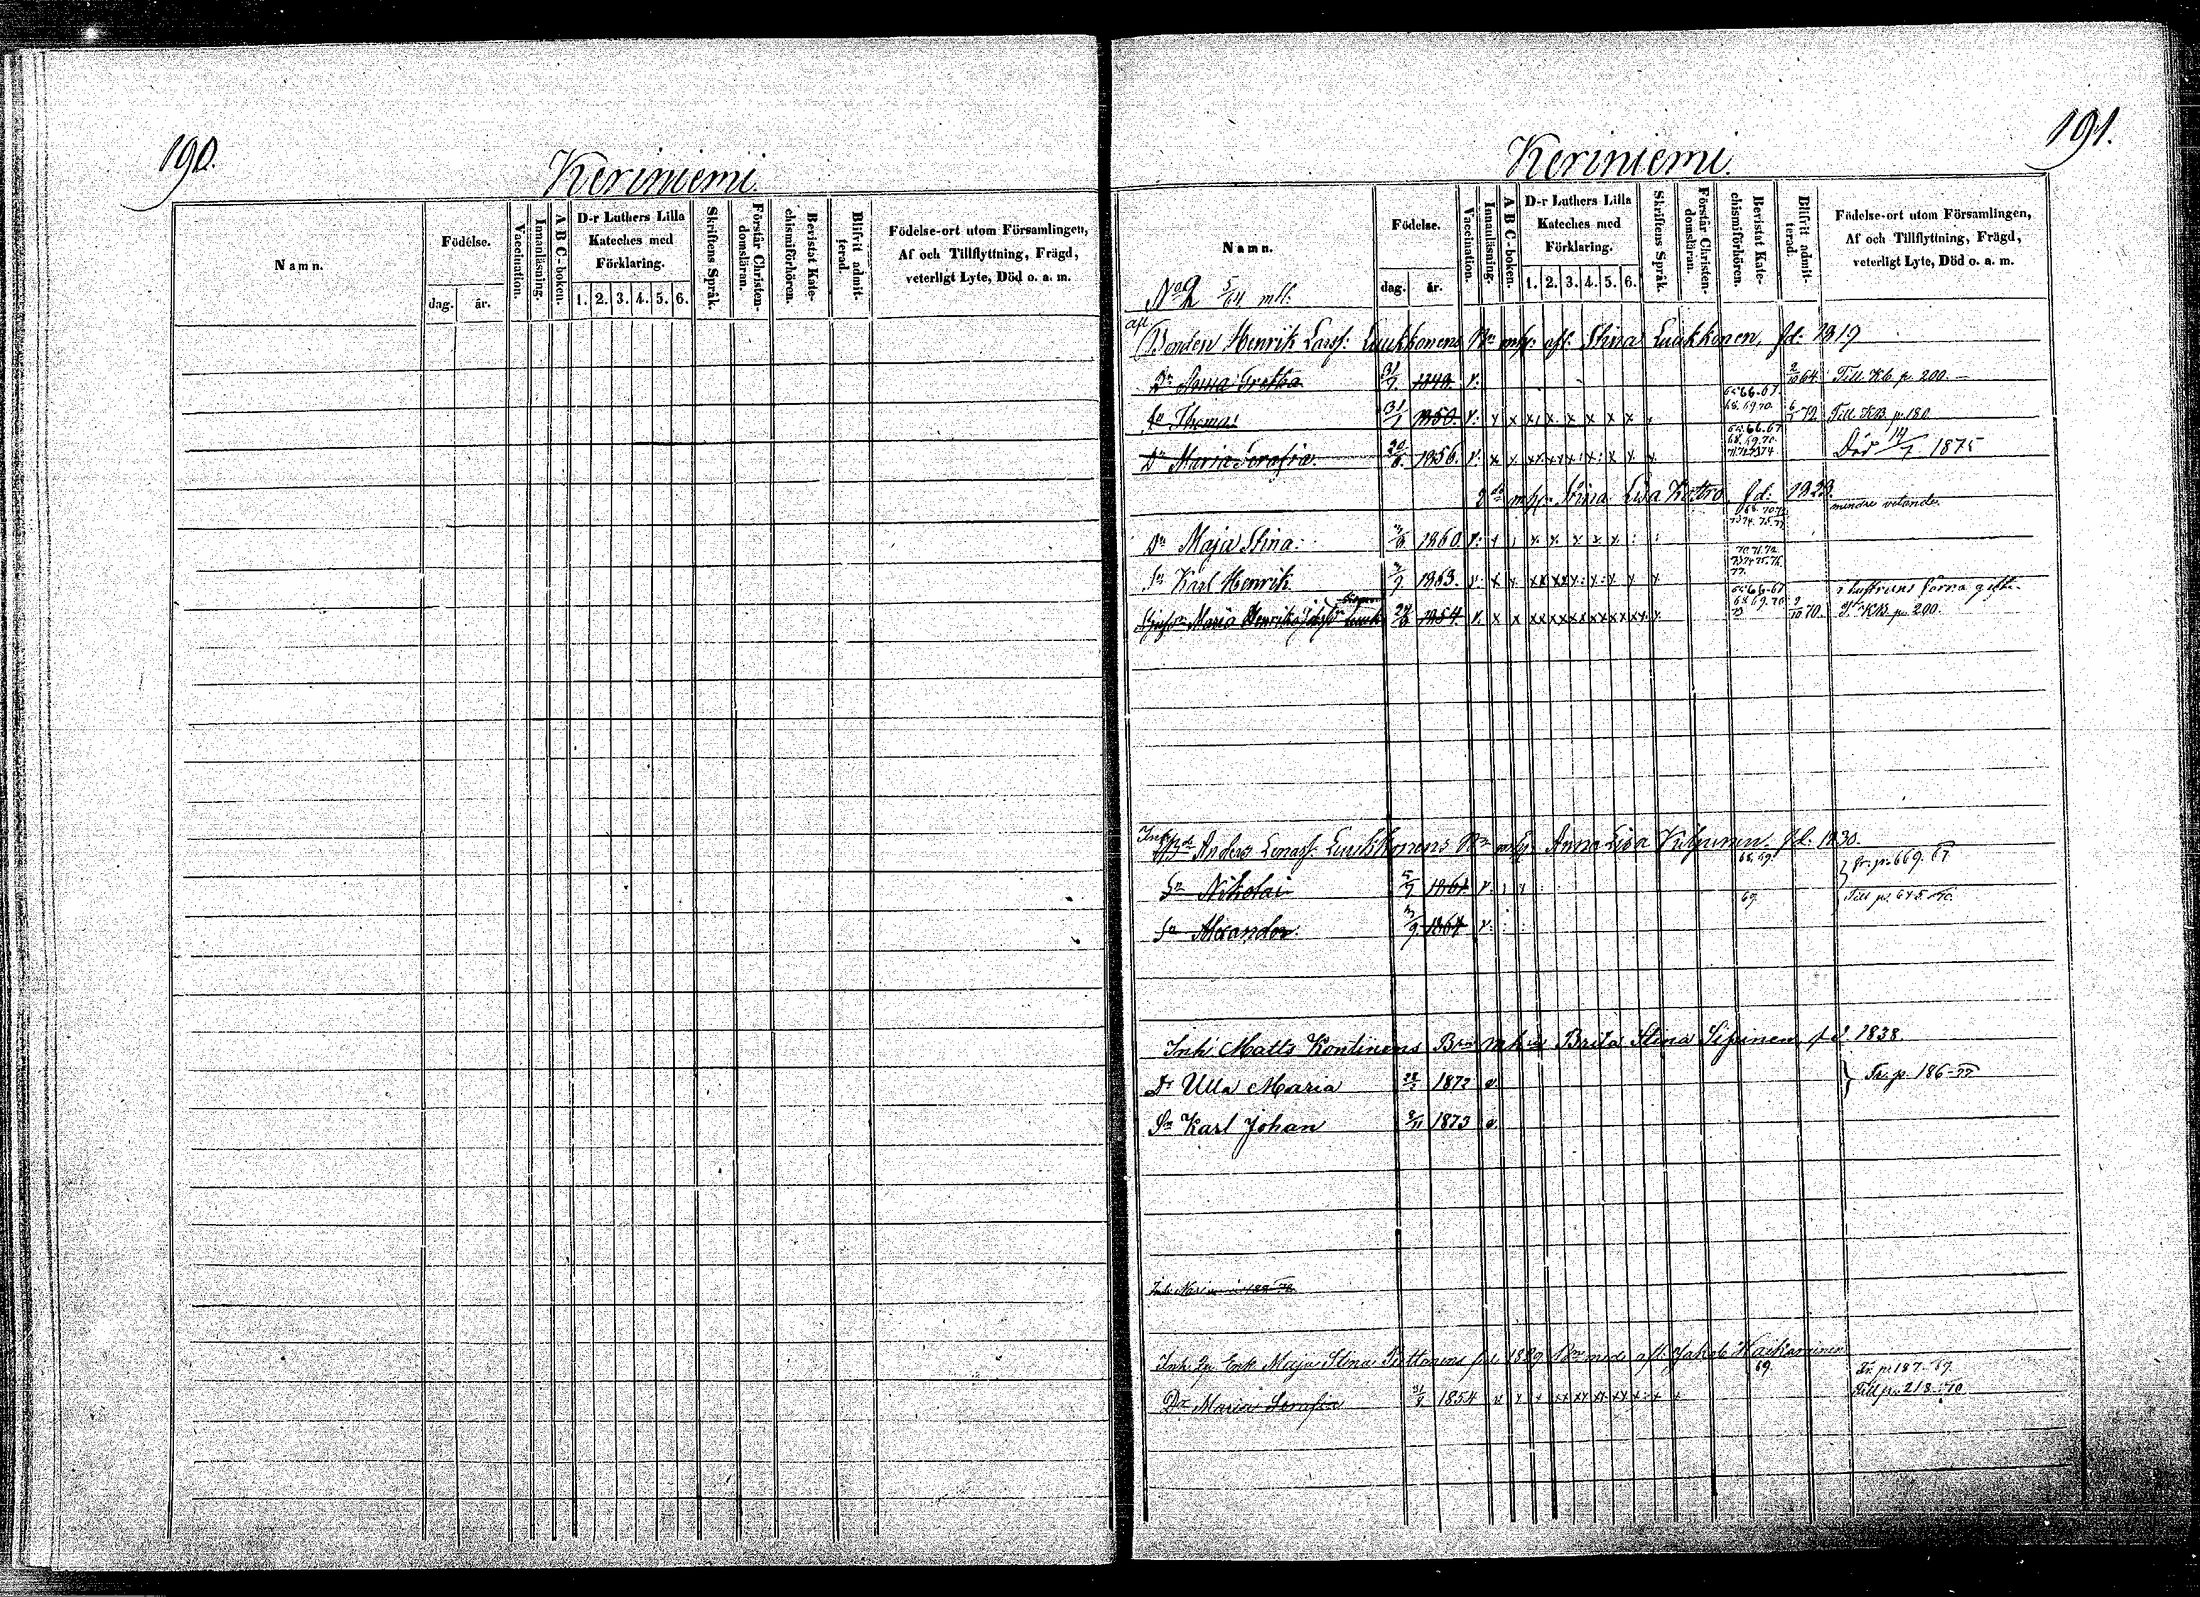 190.
Keriniemi.
Namn.
Födelse.
dag.
år.
Vaccination.
Innanläsning.
A B C-boken.
D-r Luthers Lilla
Kateches med
Förklaring.
1. 2. 3. 4. 5. 6.
Skriftens Språk.
Förstår Christen-
domsläran.
Bevistat Kate-
chismiförhören.
Blifvit admit-
terad.
Födelse-ort utom Församlingen,
Af och Tillflyttning, Frägd,
veterligt Lyte, Död o. a. m.
191.
Keriniemi.
Namn.
Födelse.
dag.
år.
Vaccination.
Innanläsning.
A B C-boken.
D-r Luthers Lilla
Kateches med
Förklaring.
1. 2. 3. 4. 5. 6.
Skriftens Språk.
Förstår Christen-
domsläran.
Bevistat Kate-
chismiförhören.
Blifvit admit-
terad.
Födelse-ort utom Församlingen,
Af och Tillflyttning, Frägd,
veterligt Lyte, Död o. a. m.
No 2 5/64 mtl.
afl.
Bonden Henrik Larsf: Luukkonens Bn mh: afl: Stina Luukkonen, fd: 1819
Dr Gretha 31/7. 1848 v. 2/10 64 Till. Kb. p. 200.
65. 66. 67.
Sn Thomas 31/1 1850. v. x x x x x x x x 68. 69. 70. 6/7 72 Till KB. p. 180
65. 66. 67
68. 69. 70.
Dr Maria Serafia. 20/8. 1856. v. x x x x x x x x x 71 72 73 74. Död 14/7. 1875
2dra mh: Stina Lisa Kettro, fd: 1823.
mindre vetande.
68. 70. 72
Dr Maja Stina. 1860. v. x x x x x x 73 74. 75. 77
70. 71. 72.
73 74 75. 76.
Sn Karl Henrik 1863. v. x x x x x x x x x 77.
65. 66. 67
68 69. 70
Maria Henriksd 24/8 1854 v. x x x x x x x x x x x 73 2/10 70. KB. p. 200.
Inh.
Anders Enarsf. Luukkonens Bn mh. Anna Lisa Kilpinen. fd: 1830.
68. 69. Fr. p. 669. 67
Sn Nikolai 5/7 1861 v.
69. Till p. 645. 70.
Sn Alexander. 1864 v.
Inh Matts Kontinens Brn mh Brita Stina Sipinen f d 1838.
Dr Ulla Maria 1872 v Fr. p. 186-77
Sn Karl Johan 2/11 1873 v
Inh. Enk Maja Stina fd 1829 Bn med afl. Jakob Haikarainen
69. Fr. p 187. 69.
Dr Maria Serafia 31/3 1854 v x x x x x x x x Till p. 218. 70